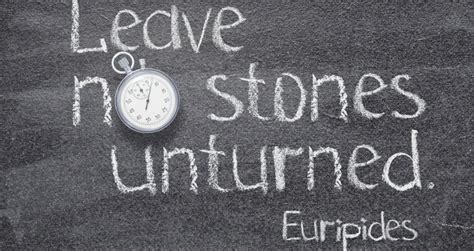 Leave
no stones
unturned.
Euripides